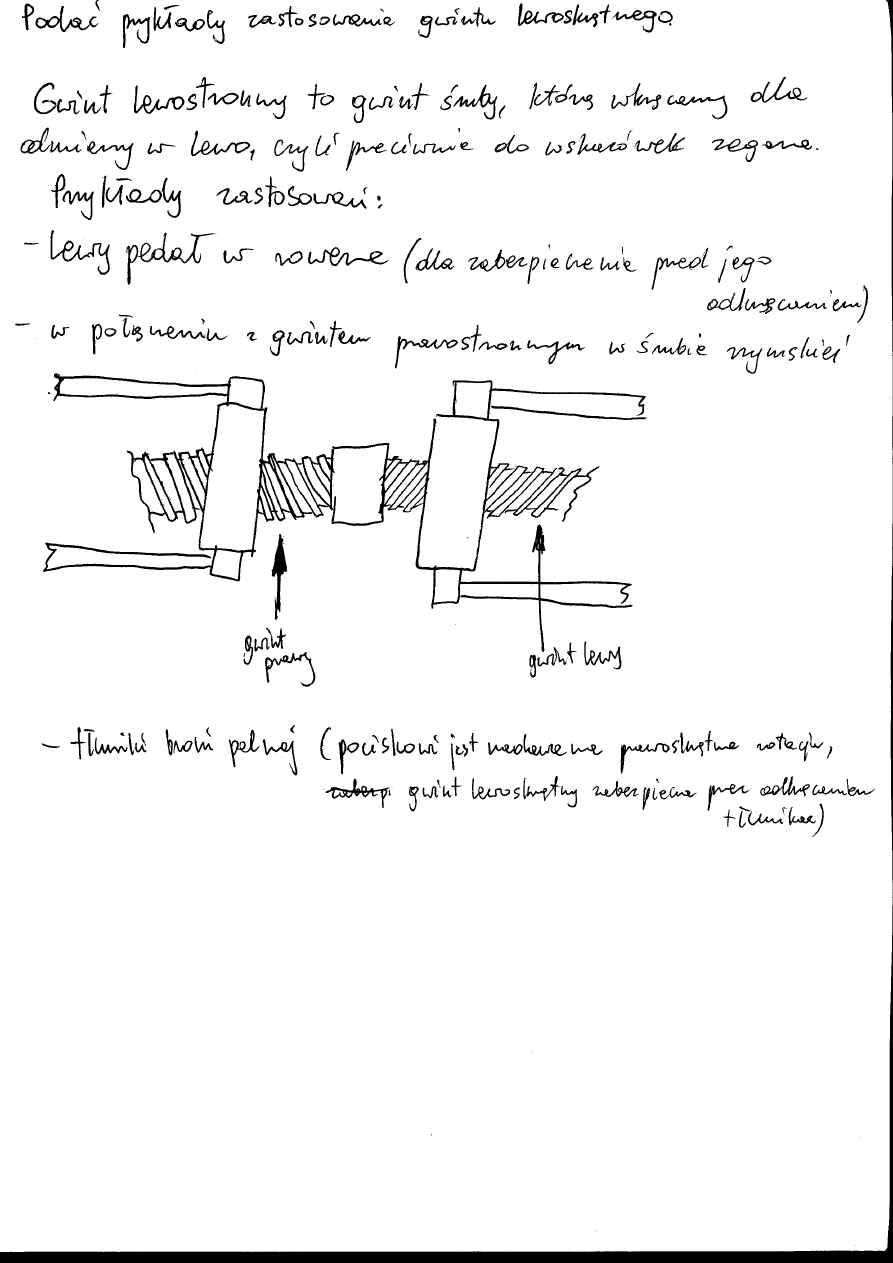 Podać przykłady zastosowania gwintu lewoskrętnego
Gwint lewostronny to gwint śruby, którą wkręcamy dla
odmiany w lewo, czyli przeciwnie do wskazówek zegara.
Przykłady zastosowań:
- Lewy pedał w rowerze (dla zabezpieczenia przed jego
odkręcaniem)
- w połączeniu z gwintem prawostronnym w śrubie rzymskiej
gwint
prawy
gwint lewy
- tłumiki broni palnej (pociskowi jest nadawana prawoskrętna rotacja,
gwint lewoskrętny zabezpiecza przez odkręceniem
tłumika)